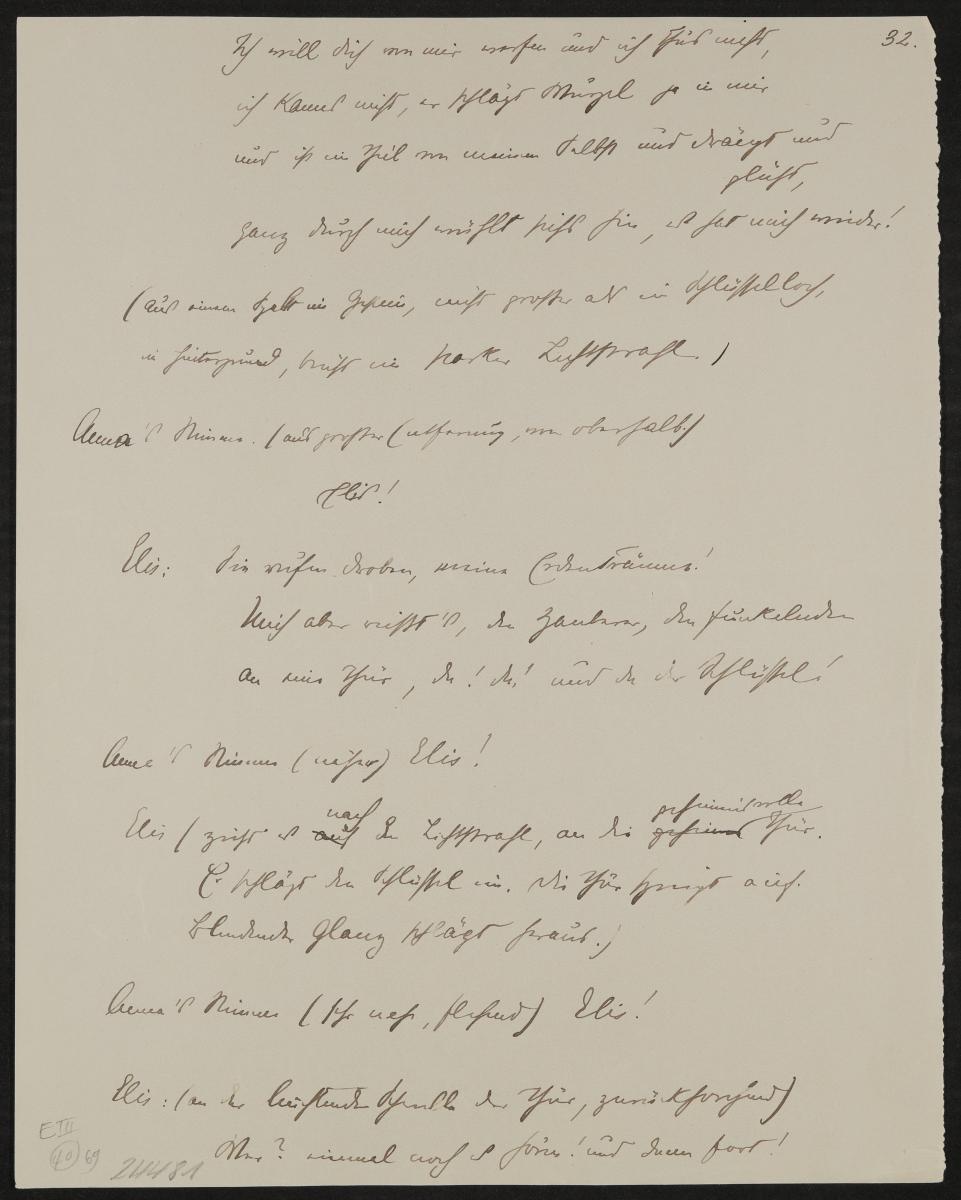 32.
Ich will dich von mir werfen und ich thu's nicht,
ich kann's nicht, er schlägt Wurzel ja in mir
und ist ein Theil von meinem Selbst und drängt und
glüht,
ganz durch mich wühlt sich's hin, es hat mich wieder!
(aus einem Spalt im Gestein, nicht größer als ein Schlüsselloch,
im Hintergrund, bricht ein starker Lichtstrahl.)
Anna's Stimme. (aus großer Entfernung, von oberhalb.)
Elis!
Elis: Sie rufen droben, meine Erdenträume!
Mich aber reißt's, den Zauberer, den funkelnden
an eine Thür, da! da! und da der Schlüssel!
Anna's Stimme (näher) Elis!
nach geheimnisvolle
Elis (zieht es auf den Lichtstrahl, an die geheime Thür.
Er schlägt den Schlüssel ein. Die Thür springt auf.
Blendender Glanz schlägt heraus.)
Anna's Stimme (sehr nah, flehend) Elis!
Elis: (an der leuchtenden Schwelle der Thür, zurückhorchend)
Wer? einmal noch es hören! und dann fort!
E III
40 69
24481